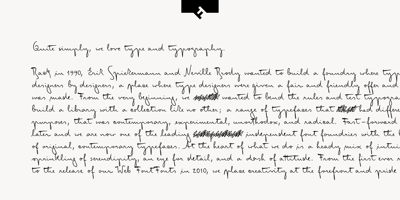 Quite simply, we love type and typography.
Back in 1990, Erik Spiekermann and Neville Brody wanted to build a foundry where type
designers by designers, a place where type designers were given a fair and friendly offer and
was made. From the very beginning, we wanted to bend the rules and test typogra
build a library with a collection like no other; a range of typefaces that had differen
purposes, that was contemporary, experimental, unorthodox, and radical. Fast-forward
later and we are now one of the leading independent font foundries with the
of original, contemporary typefaces. At the heart of what we do is a heady mix of intui
sprinkling of serendipity, an eye for detail, and a dash of attitude. From the first ever
to the release of our Web FontFonts in 2010, we place creativity at the forefront and pride